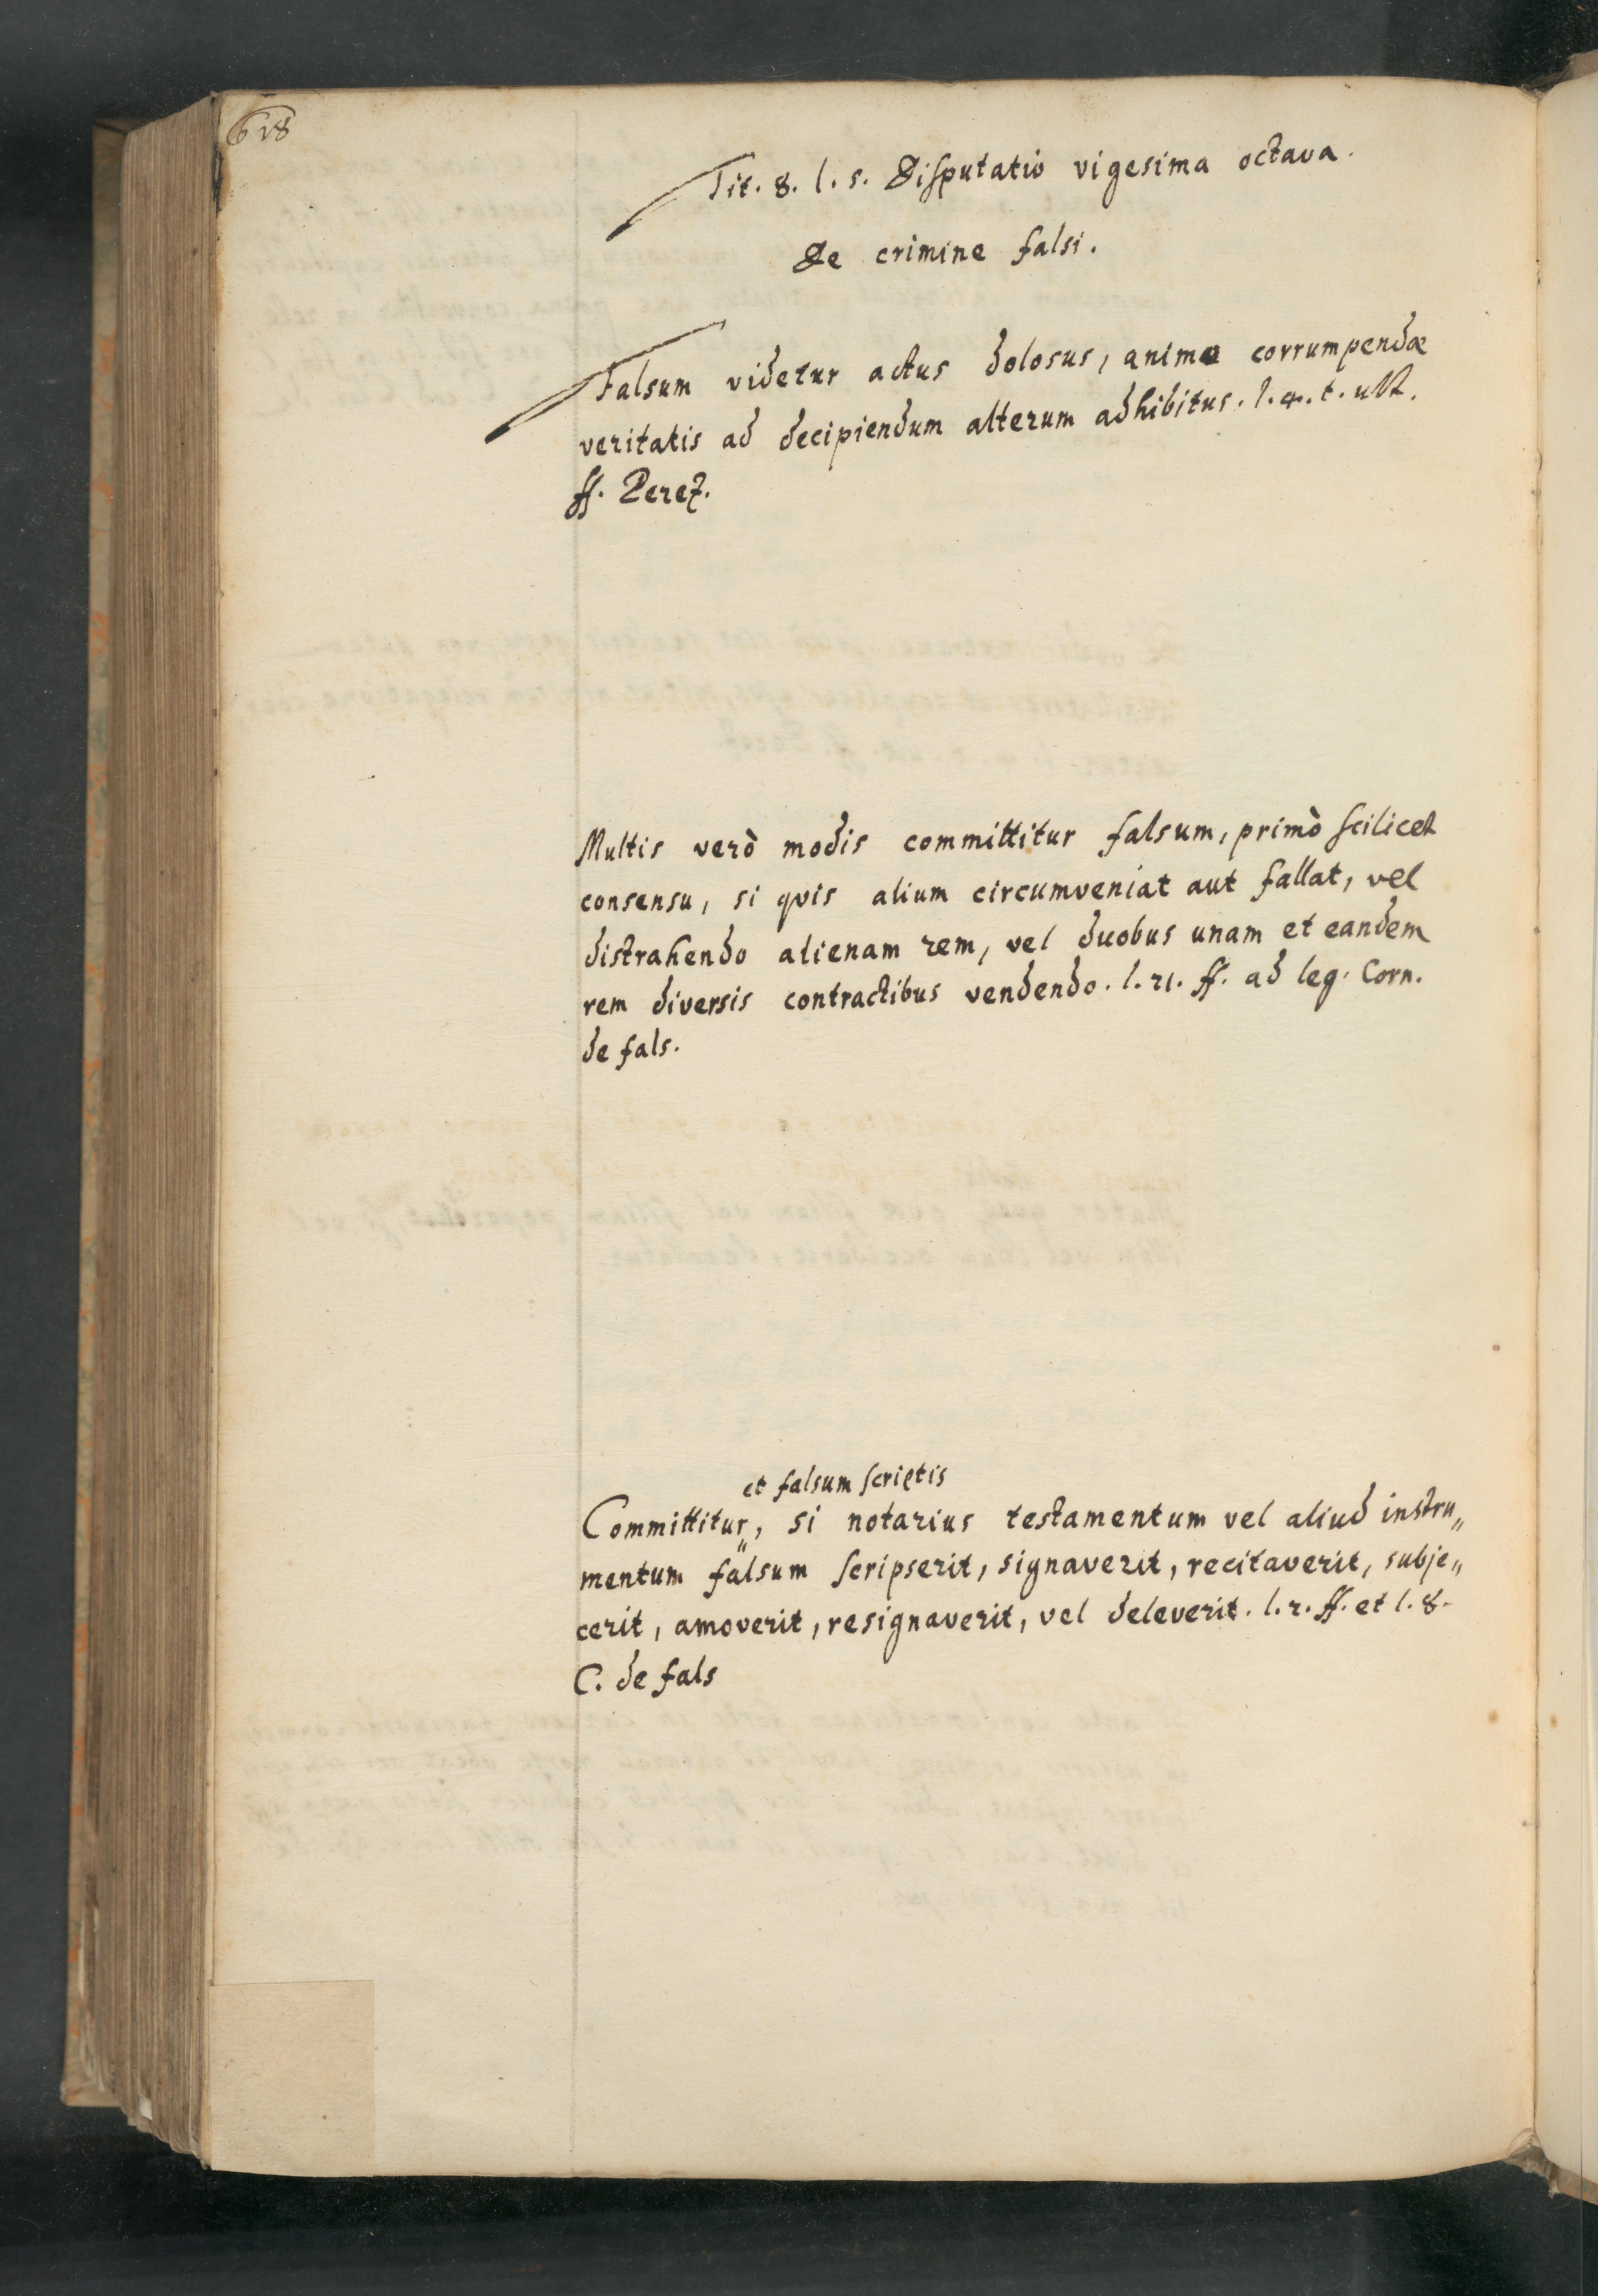 618
Tit. 8. l. 5. Disputatio vigesima octava.
De crimine falsi.
Falsum videtur actus dolosus, animo corrumpendæ
veritatis ad decipiendum alterum adhibitus. l. 4. t. ult.
ff. Perez.
Multis verò modis committitur falsum, primò scilicet
consensu, si qvis alium circumveniat aut fallat, vel
distrahendo alienam rem, vel duobus unam et eandem
rem diversis contractibus vendendo. l. 21. ff. ad leg. Corn.
de fals.
et falsum scriptis
Committitur„, si notarius testamentum vel aliud instru„
mentum falsum scripserit, signaverit, recitaverit, subje„
cerit, amoverit, resignaverit, vel deleverit. l. 2. ff. et l. 8.
C. de fals